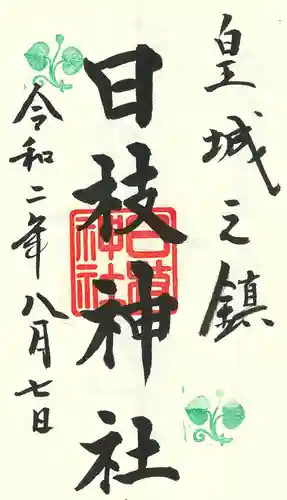 皇城之鎮
日枝神社
令和二年八月七日
日枝神社